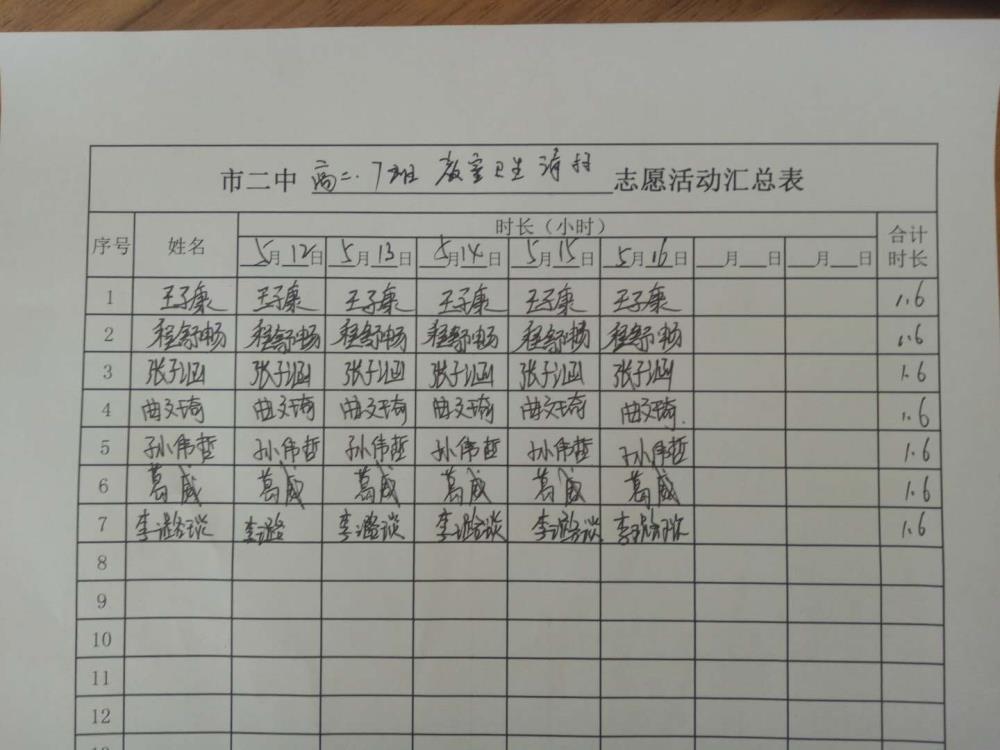 市二中 高二.7班 教室卫生清扫 志愿活动汇总表
序号 姓名 时长（小时） 合计时长
5月12日 5月13日 5月14日 5月15日 5月16日 __月__日 __月__日
1 王子康 王子康 王子康 王子康 王子康 王子康 1.6
2 程舒畅 程舒畅 程舒畅 程舒畅 程舒畅 程舒畅 1.6
3 张子涵 张子涵 张子涵 张子涵 张子涵 张子涵 1.6
4 曲文琦 曲文琦 曲文琦 曲文琦 曲文琦 曲文琦 1.6
5 孙伟哲 孙伟哲 孙伟哲 孙伟哲 孙伟哲 孙伟哲 1.6
6 葛威 葛威 葛威 葛威 葛威 葛威 1.6
7 李 李 李 李 李 李 1.6
8
9
10
11
12